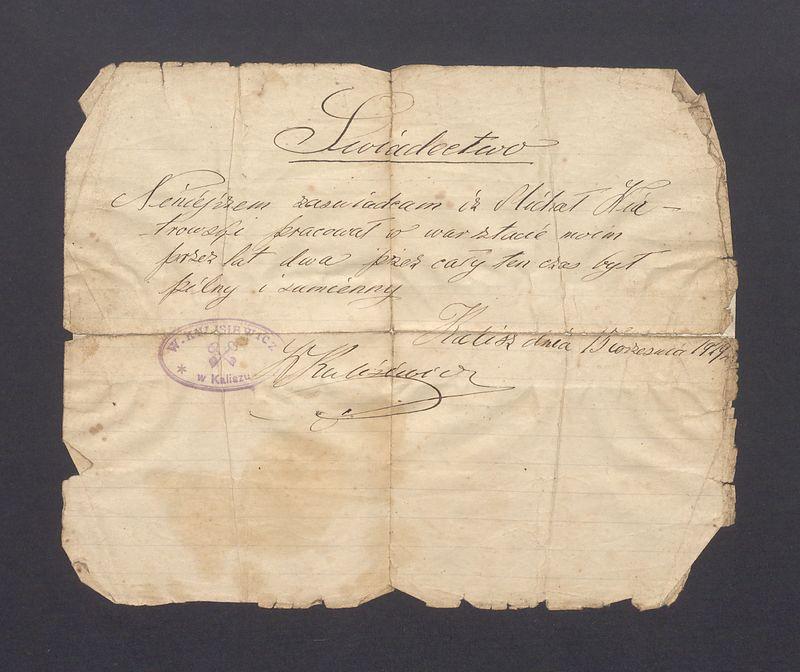 Świadectwo
Niniejszem zaświadczam iż Michał Wia-
trowski pracował w warsztacie moim
przez lat dwa przez cały ten czas był
pilny i sumienny
Kalisz dnia 15 września 1919
W. KALISIEWICZ
w Kaliszu
W Kalisiewicz